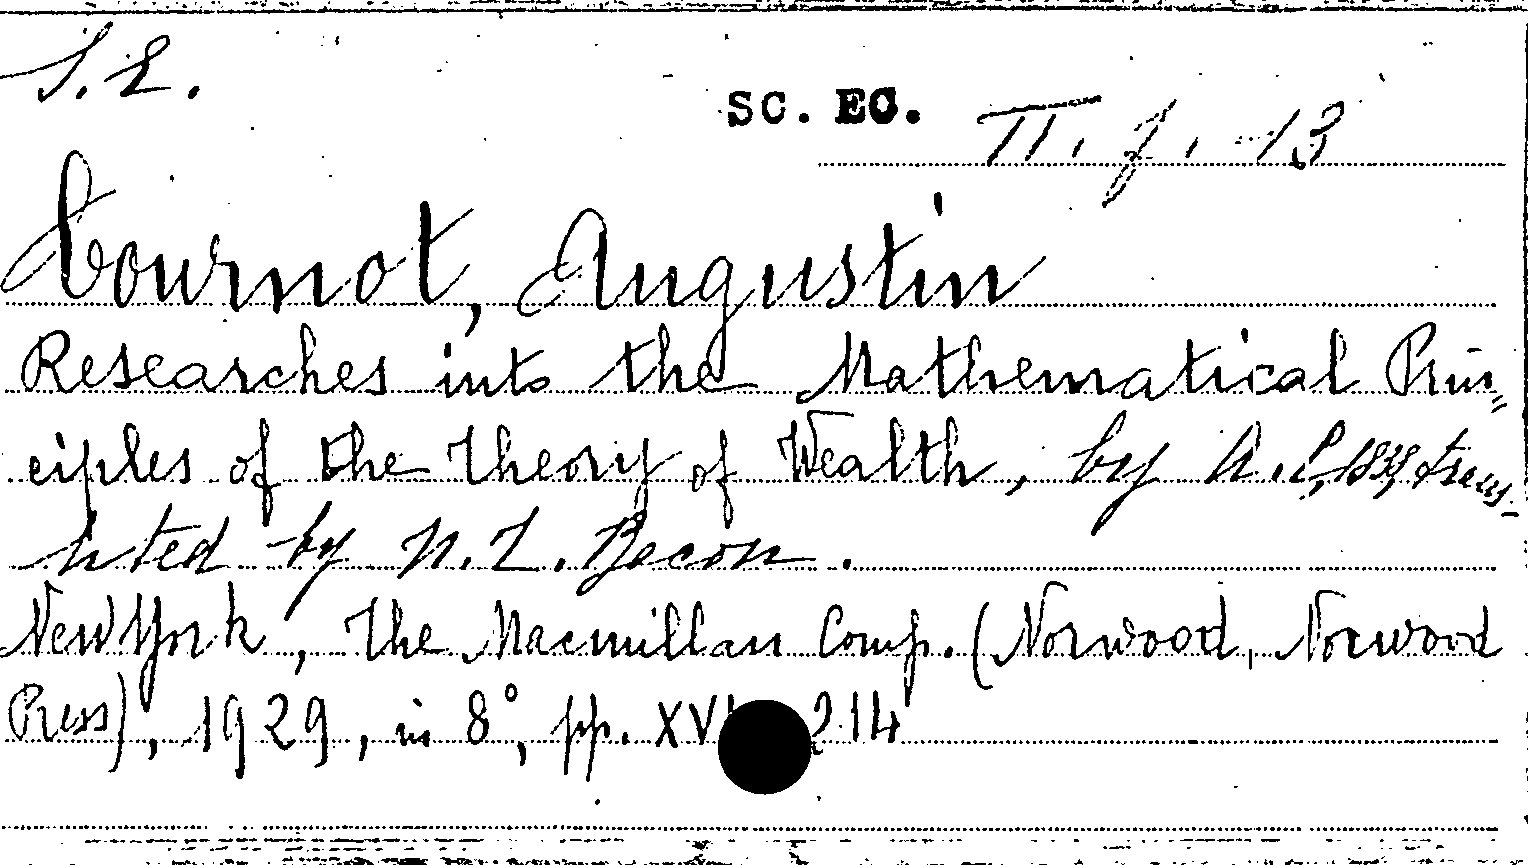 S.E.
SC. EC. II. f. 13
Cournot, Augustin
Researches into the Mathematical Prin=
ciples of the Theory of Wealth, by A. C, 1838, trans-
lated by N. T. Bacon.
New York, The Macmillan Comp. (Norwood, Norwood
Press), 1929, in 8°, pp. 214